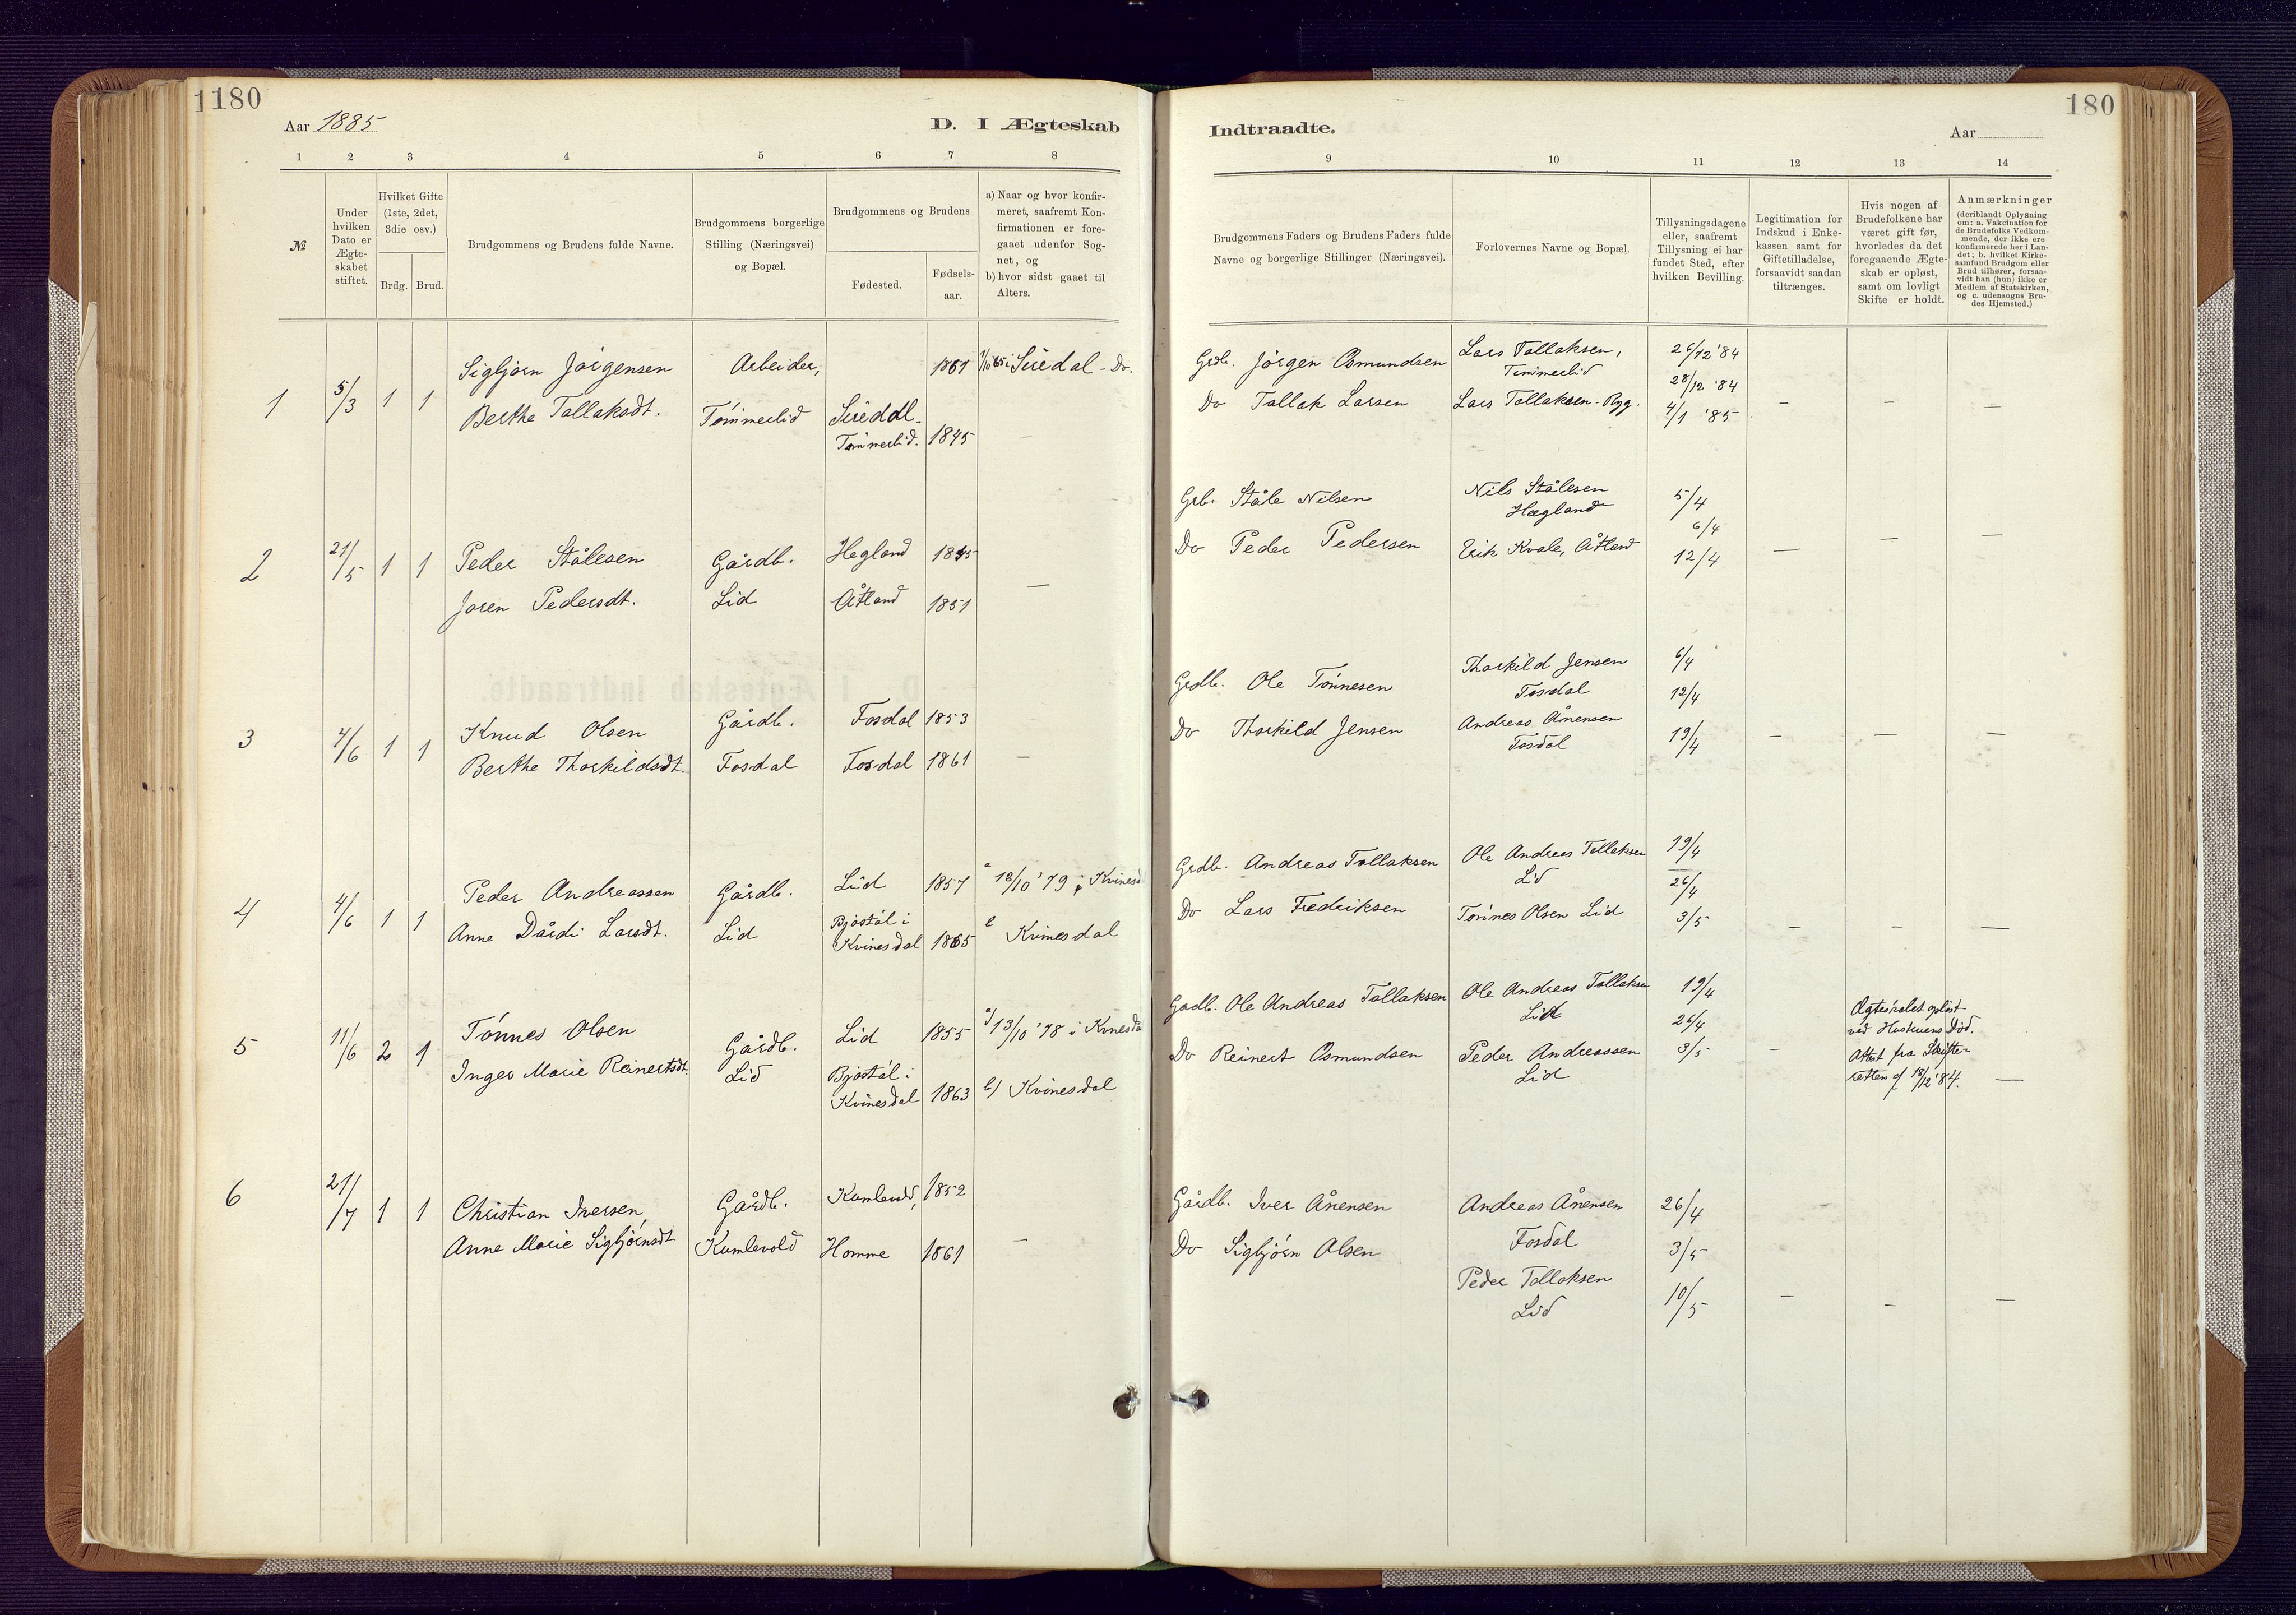 1180
180
Aar 1885
D. I Ægteskab
Indtraadte.
Aar
1 2 3 4 5 6 7 8
9 10 11 12 13 14
№
Under hvilken Dato er Ægte-skabet stiftet.
Hvilket Gifte (1ste, 2det, 3die osv.)
Brdg. Brud.
Brudgommens og Brudens fulde Navne.
Brudgommens borgerlige Stilling (Næringsvei) og Bopæl.
Brudgommens og Brudens
Fødested.
Fødsels-aar.
a) Naar og hvor konfir-
meret, saafremt Kon-
firmationen er fore-
gaaet udenfor Sog-
net, og
b) hvor sidst gaaet til
Alters.
Brudgommens Faders og Brudens Faders fulde
Navne og borgerlige Stillinger (Næringsvei).
Forlovernes Navne og Bopæl.
Tillysningsdagene
eller, saafremt
Tillysning ei har
fundet Sted, efter
hvilken Bevilling.
Legitimation for
Indskud i Enke-
kassen samt for
Giftetilladelse,
forsaavidt saadan
tiltrænges.
Hvis nogen af
Brudefolkene har
været gift før,
hvorledes da det
foregaaende Ægte-
skab er opløst,
samt om lovligt
Skifte er holdt.
Anmærkninger
(deriblandt Oplysning
om: a. Vakcination for
de Brudefolks Vedkom-
mende, der ikke ere
konfirmerede her i Lan-
det; b. hvilket Kirke-
samfund Brudgom eller
Brud tilhører, forsaa-
vidt han (hun) ikke er
Medlem af Statskirken,
og c. udensogns Bru-
des Hjemsted.)
1 5/3 1 1
Sigbjørn Jørgensen Arbeider, 1861 Siredal - Do.
Berthe Tollaksdt. Tømmerlid Siredal
Tømmerlid. 1845 —
Grdb. Jørgen Osmundsen Lars Tollaksen, 26/12 '84
Tømmerlid 28/12 '84
Do Tollak Larsen Lars Tollaksen - Ryg. 4/1 '85 — — —
2 21/5 1 1
Peder Stålesen Gårdb. Hegland 1845
Joren Pedersdt. Lid Åtland 1851 —
Grb. Ståle Nilsen Nils Stålesen 5/4
Hægland 6/4
Do Peder Pedersen Erik Kvale, Åtland 12/4 — — —
3 4/6 1 1
Knud Olsen Gårdb. Fosdal 1853
Berthe Thorkildsdt. Fosdal Fosdal 1861 —
Grdb. Ole Tønnesen Thorkild Jensen 6/4
Fosdal 12/4
Do Thorkild Jensen Andreas Ånensen
Fosdal 19/4 — — —
4 4/6 1 1
Peder Andreassen Gårdb. Lid 1857 a 12/10 '79 i Kvinesd
Anne Dårdi Larsdt. Lid Bjostøl i
Kvinesdal 1865 b Kvinesdal
Grdb. Andreas Tollaksen Ole Andreas Tollaksen 19/4
Lid 26/4
Do Lars Fredriksen Tønnes Olsen Lid 3/5 — — —
5 11/6 2 1
Tønnes Olsen Gårdb. Lid 1855 a) 13/10 '78 i Kvinesda
Inger Marie Reinertsdt. Lid Bjostøl i
Kvinesdal 1863 b) Kvinesdal
Gardb. Ole Andreas Tollaksen Ole Andreas Tollaksen 19/4
Lid 26/4
Do Reinert Osmundsen Peder Andreassen 3/5 —
Lid
Ægteskabet opløst
ved Hustruens Død.
Attest fra Skifte-
retten af 18/12 '84. —
6 21/7 1 1
Christian Iversen, Gårdb. Kumlevold, 1852
Anne Marie Sigbjørnsdt Kumlevold Homme 1861 —
Gårdb. Iver Ånensen Andreas Ånensen 26/4
Do Sigbjørn Olsen Fosdal 3/5
Peder Tollaksen
Lid 10/5 — — —